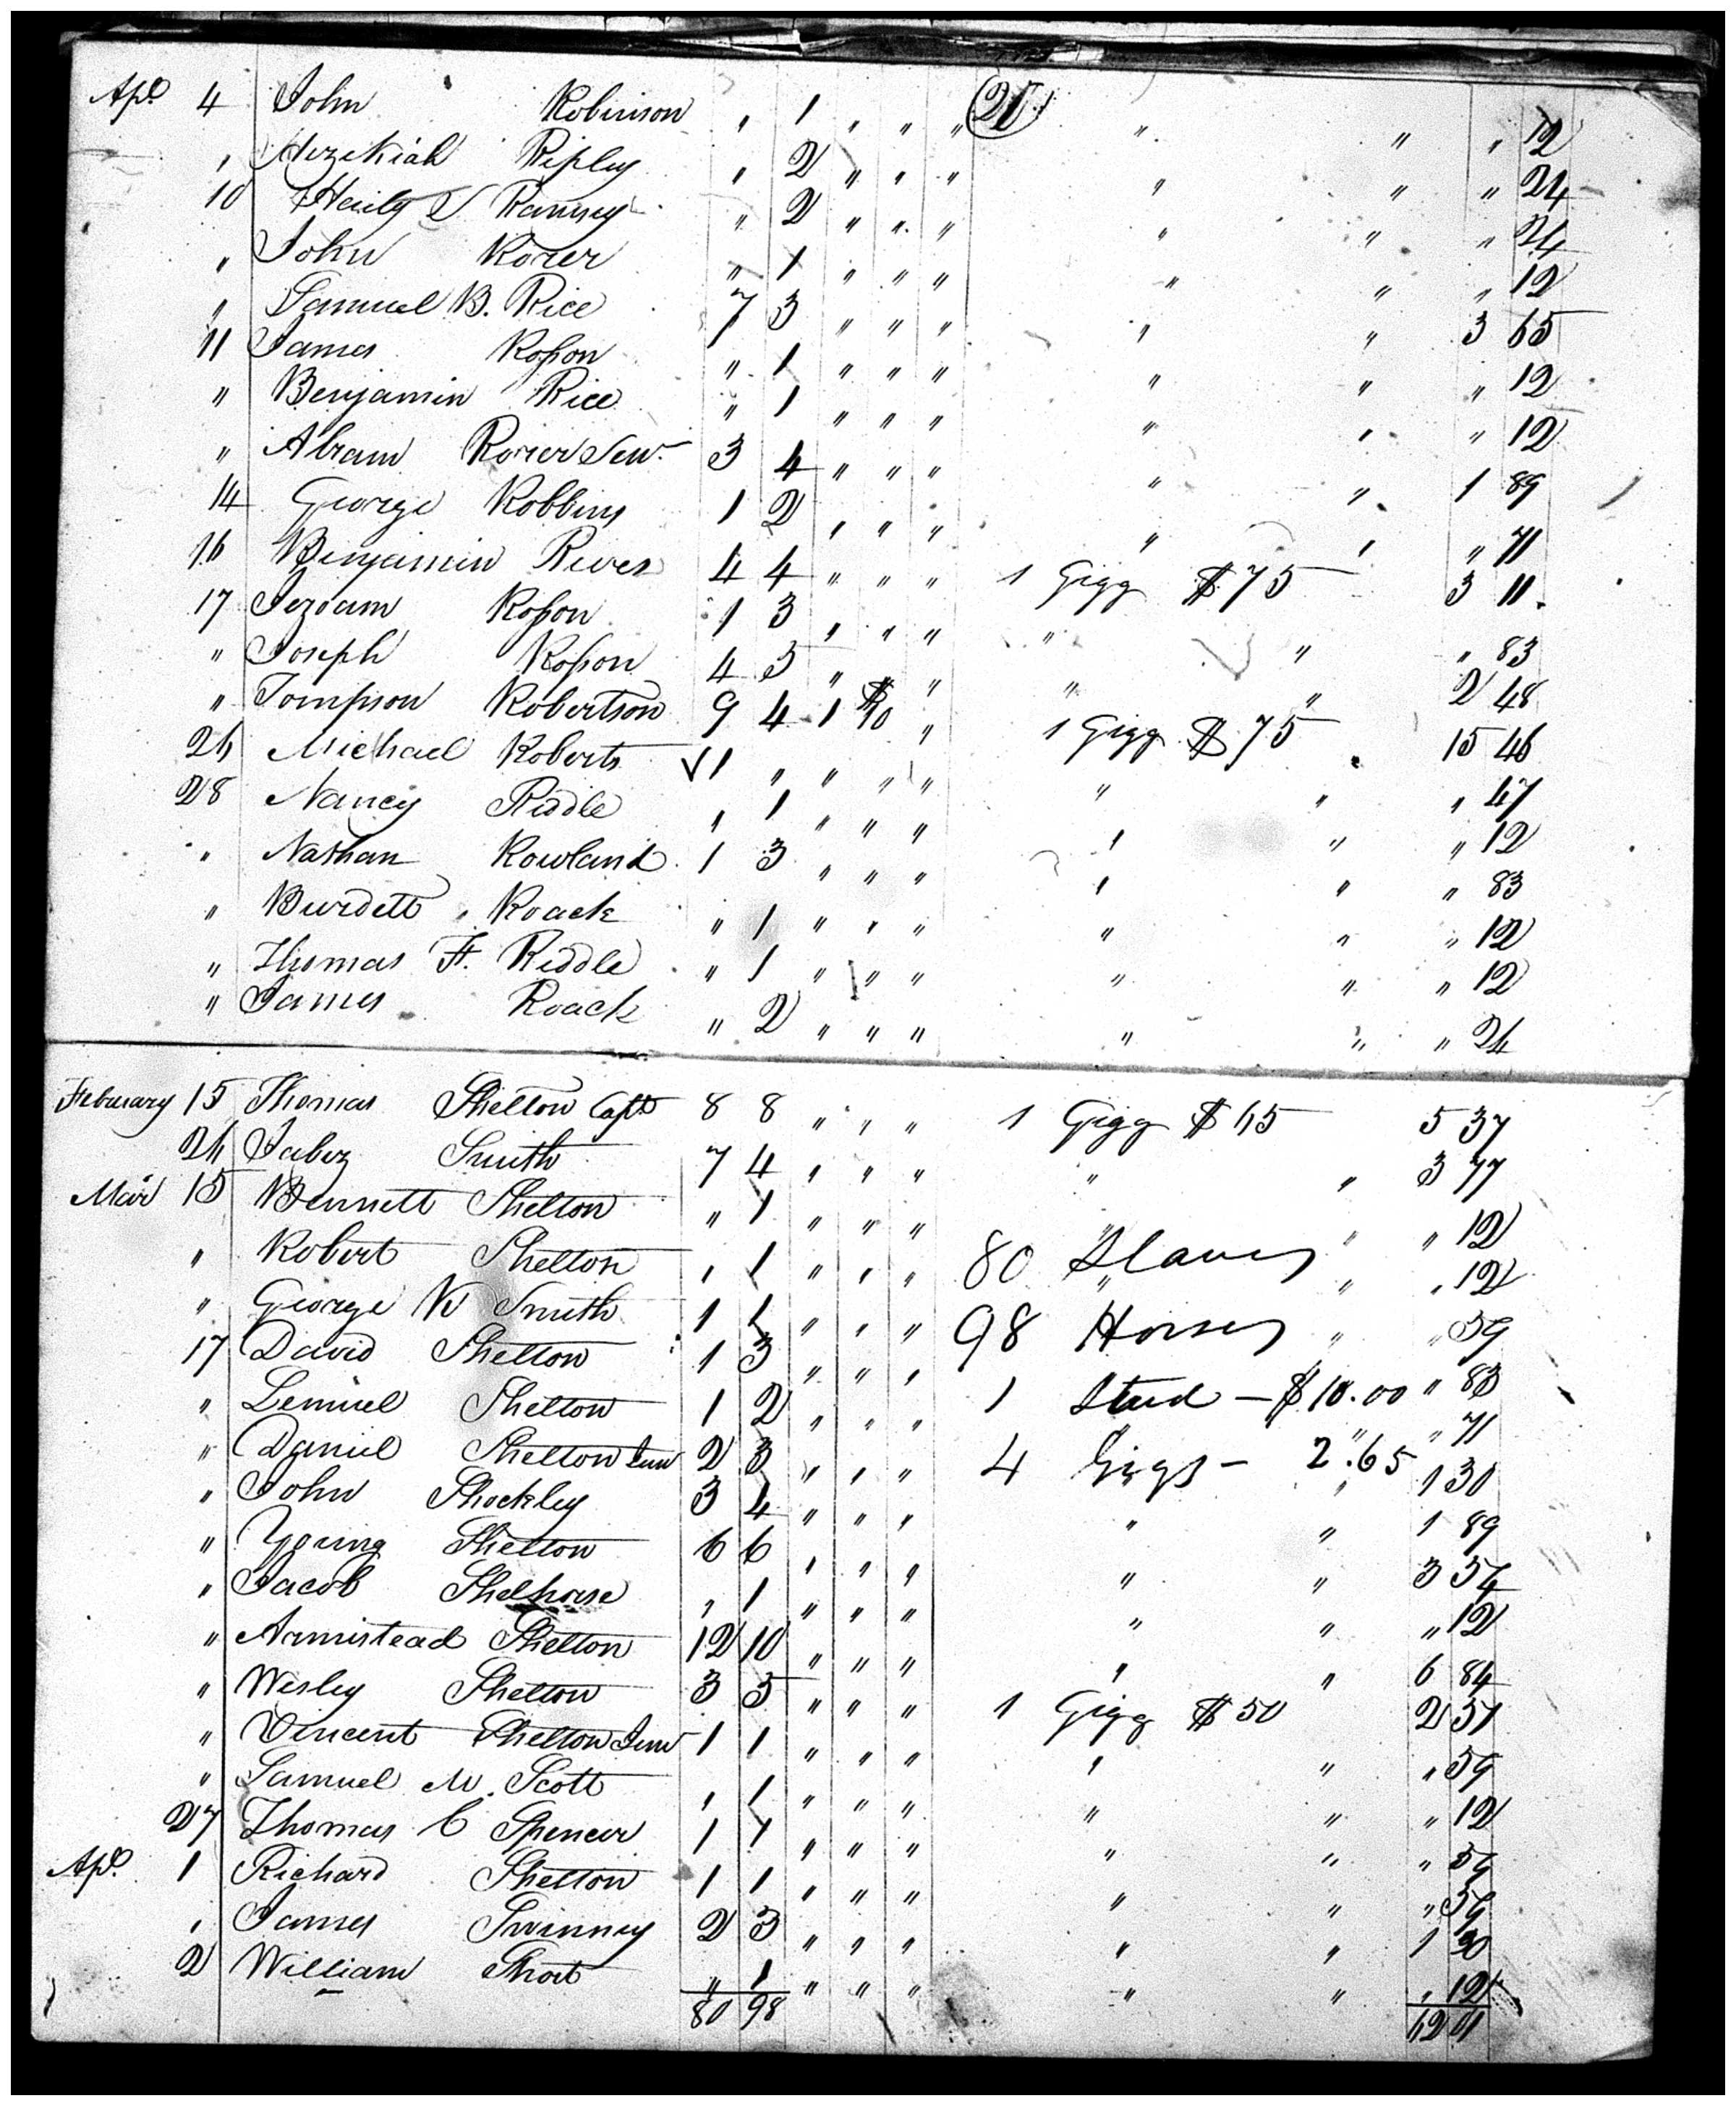 21
Apl. 4 John Robinson " 1 " " " " " " 12
" Hezekiah Ripley " 2 " " " " " " 24
10 Haily S Ramsey " 2 " " " " " " 24
" John Rorer " 1 " " " " " " 12
" Samuel B. Rice 7 3 " " " " " 3 65
11 James Rosson " 1 " " " " " " 12
" Benjamin Rice " 1 " " " " " " 12
" Abram Rorer Sen. 3 4 " " " " " 1 89
14 George Robbins 1 2 " " " " " " 71
16 Benjamin Rives 4 4 " " " 1 Gigg $75 3 11
17 Jeroam Rosson 1 3 " " " " " " 83
" Joseph Rosson 4 5 " " " " " 2 48
" Tompson Robertson 9 4 1 $10 " 1 Gigg $75 15 46
26 Michael Roberts 1 " " " " " " " 47
28 Nancy Riddle " 1 " " " " " " 12
" Nathan Rowland 1 3 " " " " " " 83
" Burdett Roach " 1 " " " " " " 12
" Thomas F. Riddle " 1 " " " " " " 12
" James Roach " 2 " " " " " " 24
February 15 Thomas Shelton Capt 8 8 " " " 1 Gigg $65 5 37
26 Jabez Smith 7 4 " " " " " 3 77
Mar 15 Bennett Shelton " 1 " " " " " " 12
" Robert Shelton " 1 " " " 80 Slaves " " " 12
" George W Smith 1 1 " " " 98 Horses " " 59
17 David Shelton 1 3 " " " 1 Stud - $10.00 " 83
" Lemuel Shelton 1 2 " " " " " 71
" Daniel Shelton Jun 2 3 " " " 4 Gigs - 2.65 1 30
" John Shockley 3 4 " " " " " 1 89
" Young Shelton 6 6 " " " " " 3 54
" Jacob Shelhorse " 1 " " " " " " 12
" Armistead Shelton 12 10 " " " " " 6 84
" Wesley Shelton 3 5 " " " 1 Gigg $50 2 51
" Vincent Shelton Jun 1 1 " " " " " " 59
" Samuel M. Scott " 1 " " " " " " 12
27 Thomas C Spencer 1 1 " " " " " " 59
Apl. 1 Richard Shelton 1 1 " " " " " " 59
" James Swinney 2 3 " " " " " 1 30
2 William Short " 1 " " " " " " 12
80 98 62 01